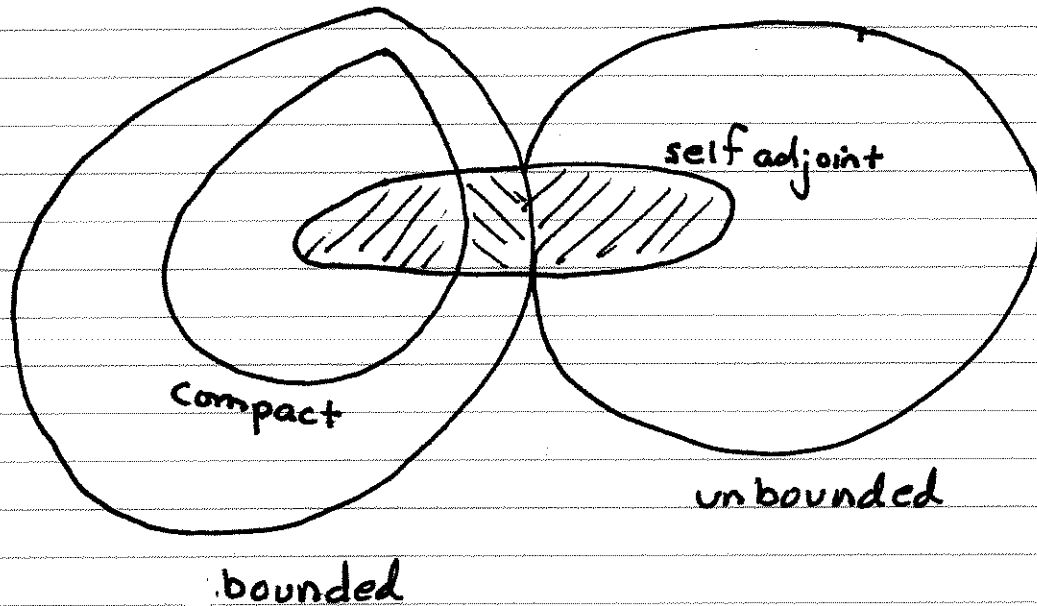 self adjoint
compact
unbounded
bounded